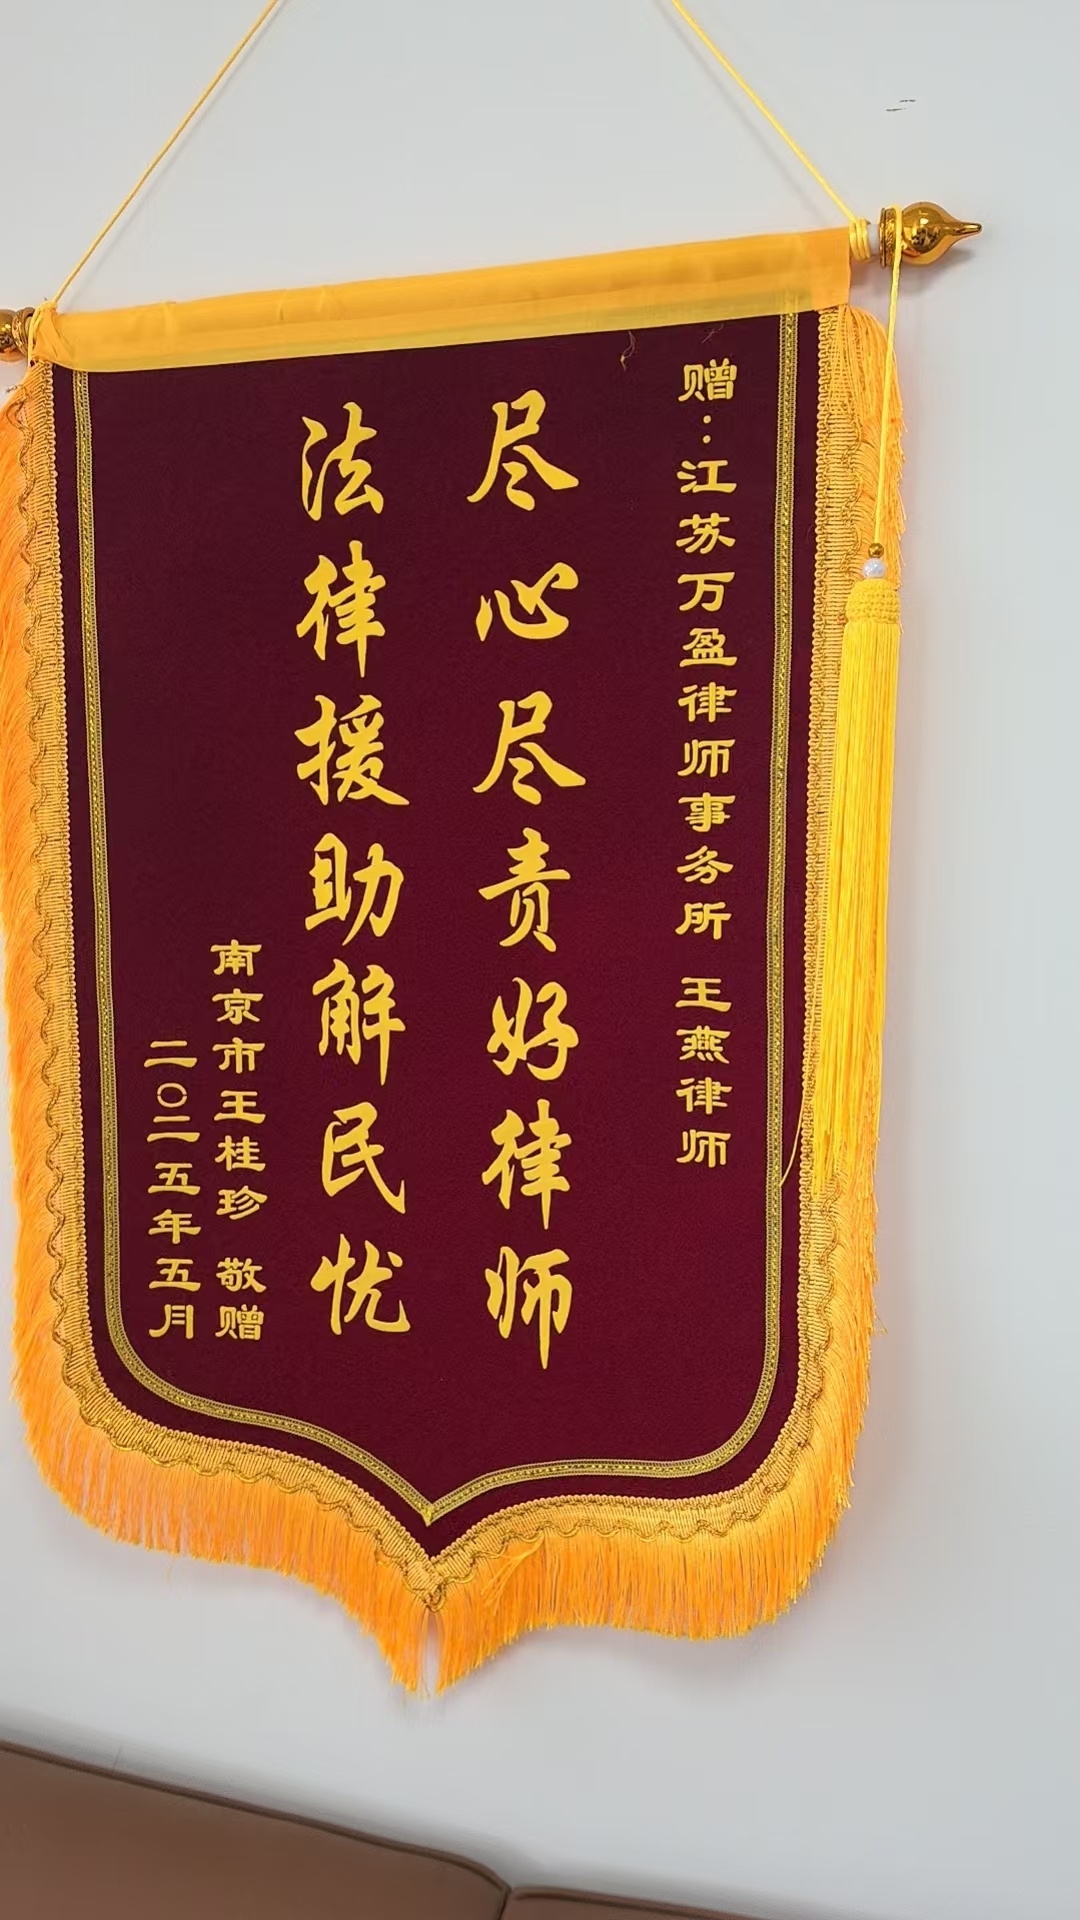 赠：江苏万盈律师事务所 王燕律师
尽心尽责好律师
法律援助解民忧
南京市王桂珍 敬赠
二〇二五年五月